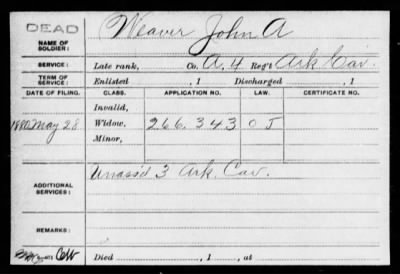 DEAD
Weaver, John A
NAME OF SOLDIER:
SERVICE: Late rank, Co. A, 4 Reg't Ark Cav.
TERM OF SERVICE: Enlisted , 1 Discharged , 1
DATE OF FILING. CLASS. APPLICATION NO. LAW. CERTIFICATE NO.
Invalid,
1880 May 28 Widow, 266.343 O J
Minor,
ADDITIONAL SERVICES: Unass'd 3 Ark. Cav.
REMARKS:
Died , 1 , at